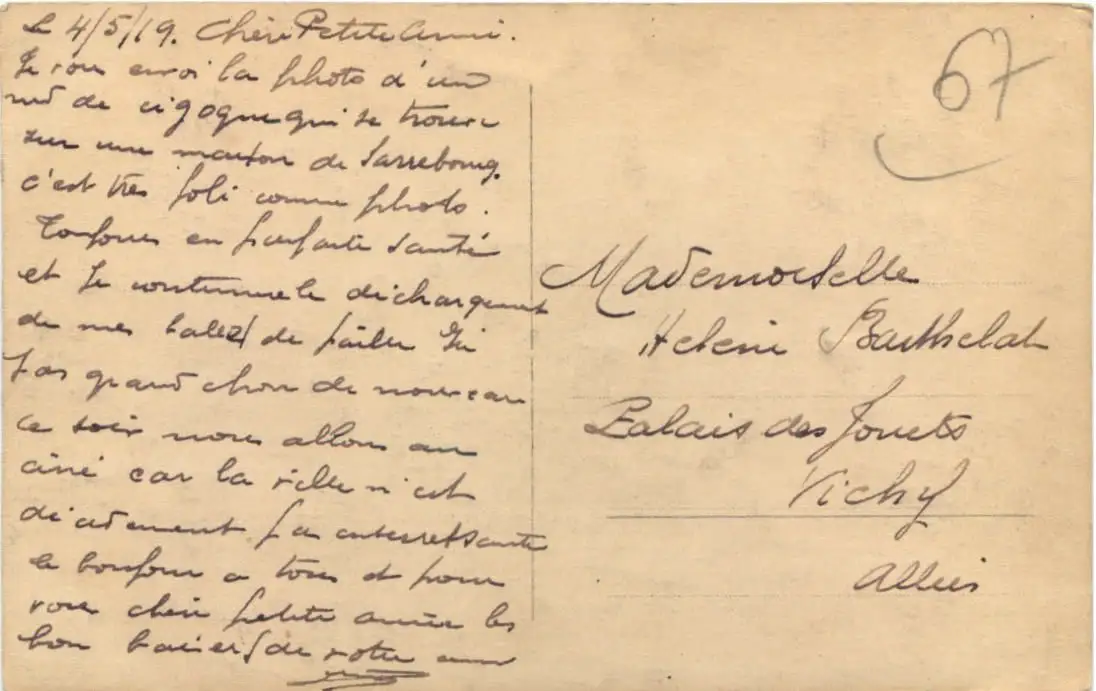 Le 4/5/19. Chère Petite Amie.
Je vous envoi la photo d'un
nid de cigogne qui se trouve
sur une maison de Sarrebourg.
c'est très joli comme photo.
Toujours en parfaite santé
et je continue le déchargement
de mes balles de paille
Pas grand chose de nouveau
ce soir nous allons au
ciné car la ville n'est
décidement pas interressante
le bonjour a tous et pour
vous chère petite amie les
bon baisers de votre ami
67
Mademoiselle
Helene Barthelat
Palais des Jouets
Vichy
Allier